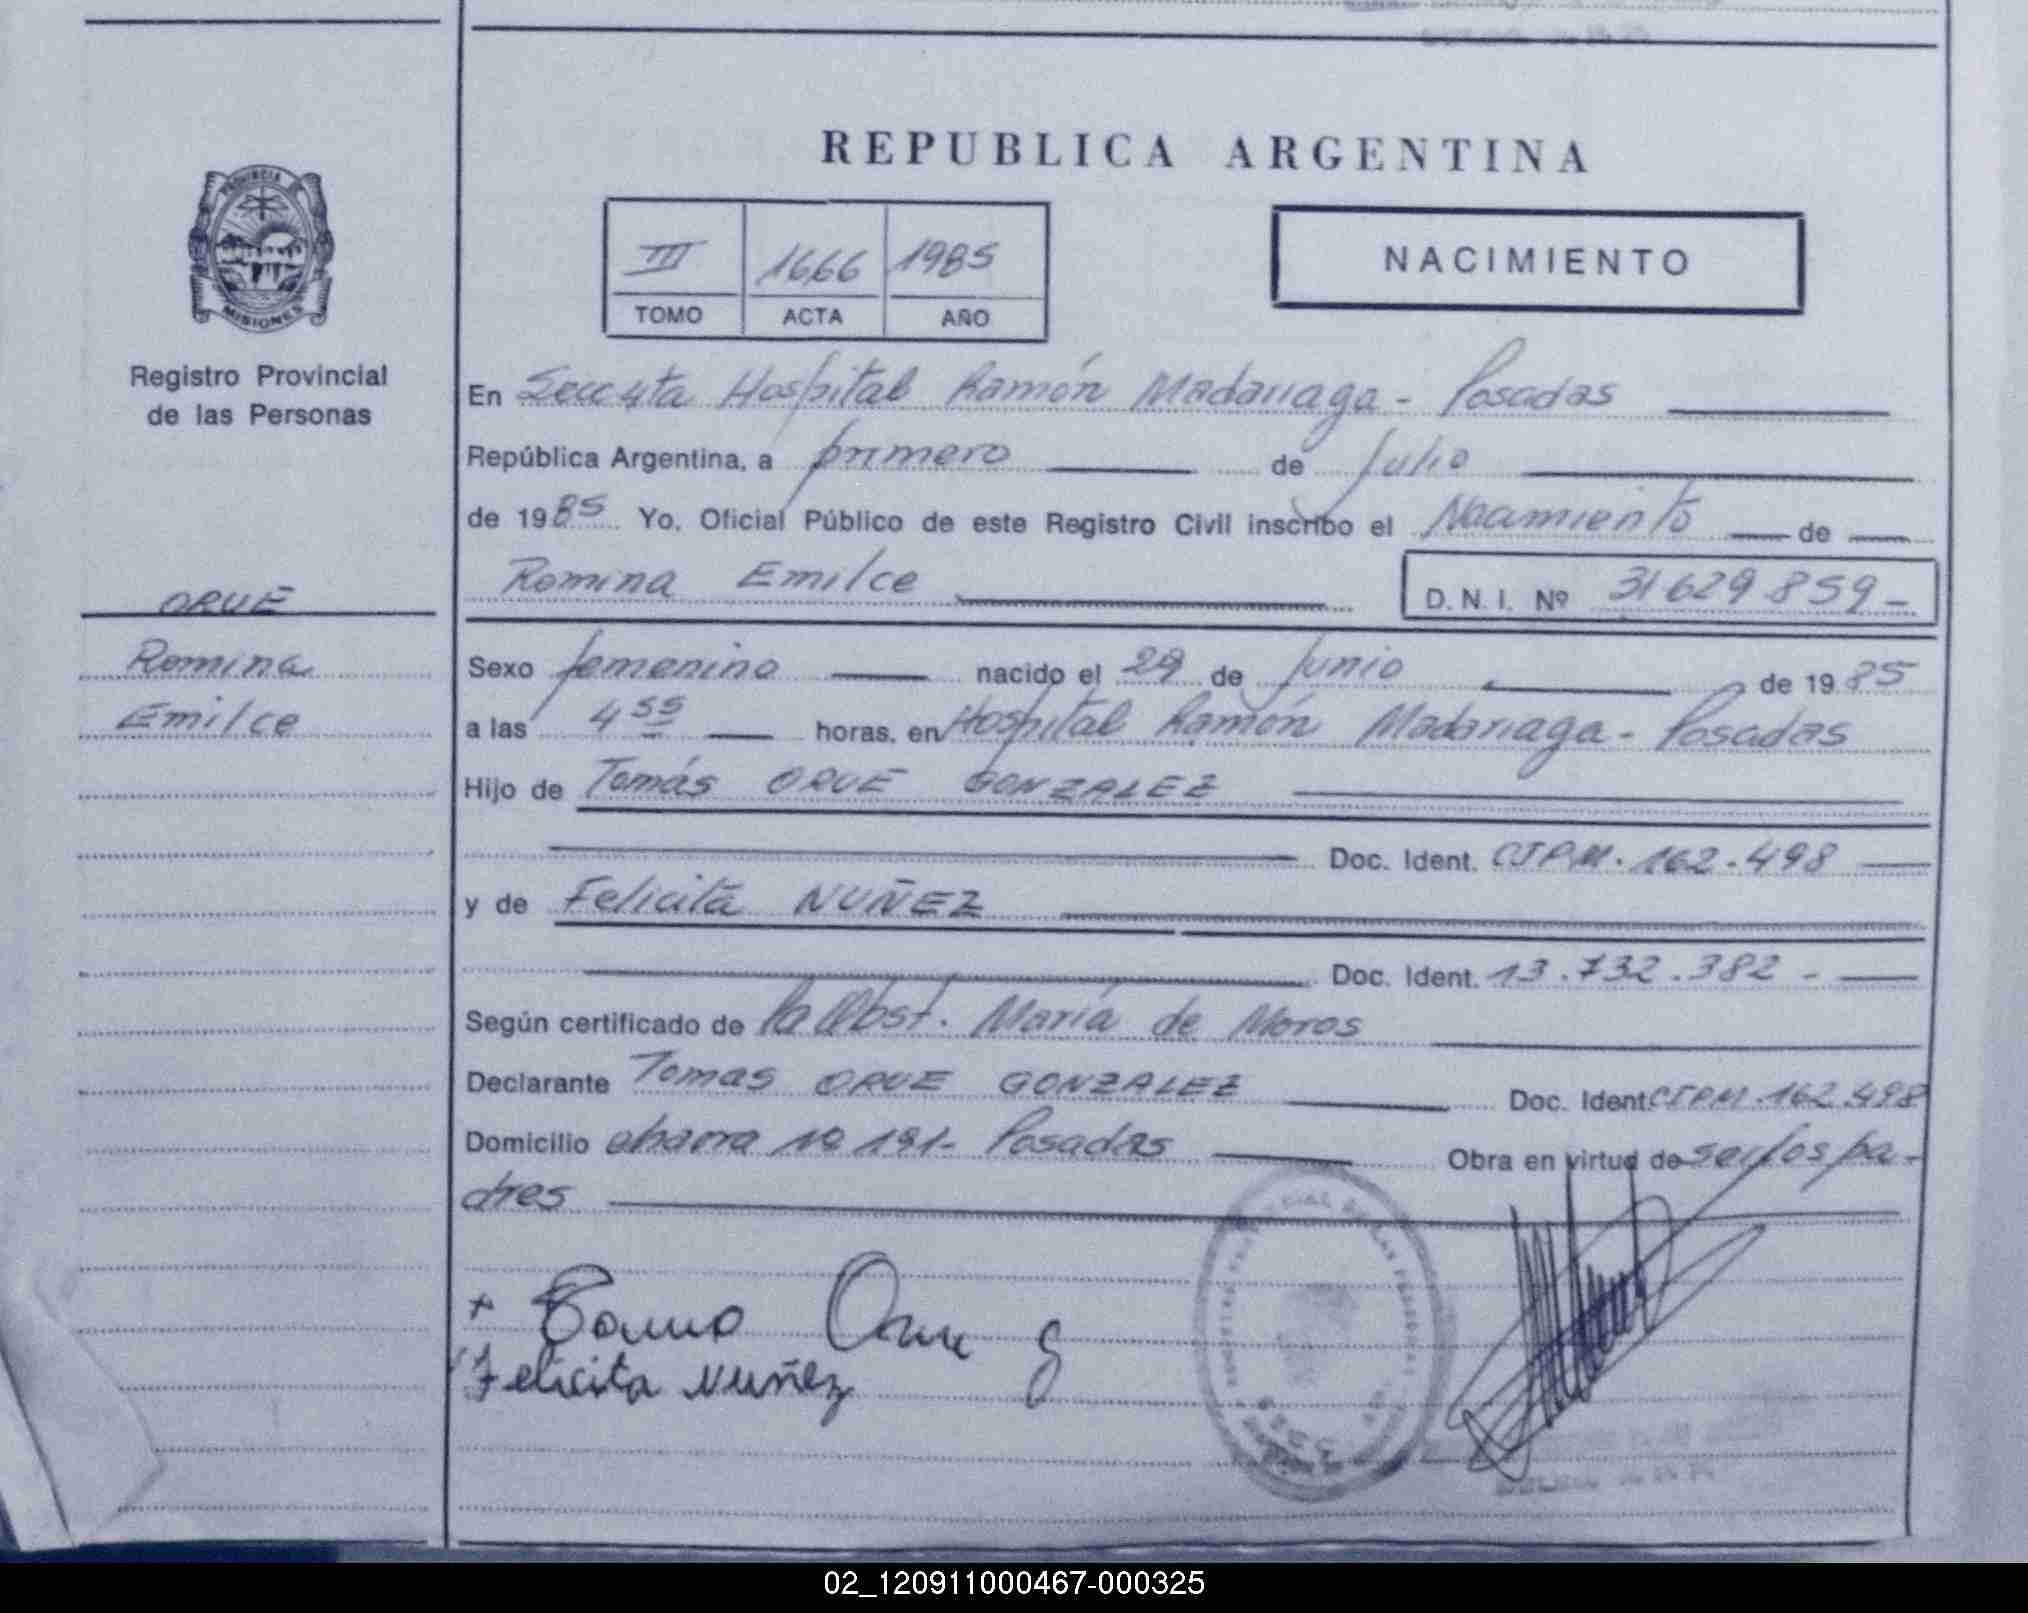 REPUBLICA ARGENTINA
PROVINCIA DE
MISIONES
Registro Provincial
de las Personas
III 1666 1985
TOMO ACTA AÑO
NACIMIENTO
En Secc 4ta Hospital Ramón Madariaga - Posadas
República Argentina, a primero de Julio
de 1985 Yo, Oficial Público de este Registro Civil inscribo el Nacimiento de
Romina Emilce D. N. I. Nº 31629859-
ORUE
Romina
Emilce
Sexo femenino nacido el 29 de Junio de 1985
a las 4 55 horas, en Hospital Ramón Madariaga - Posadas
Hijo de Tomás ORUE GONZALEZ
Doc. Ident. CIPM. 162.498
y de Felicita NUÑEZ
Doc. Ident. 13.732.382 -
Según certificado de la Obst. María de Moros
Declarante Tomas ORUE GONZALEZ Doc. Ident CIPM. 162.498
Domicilio Nº 191- Posadas Obra en virtud de ser los pa-
dres
Felicita Nuñez
02_120911000467-000325